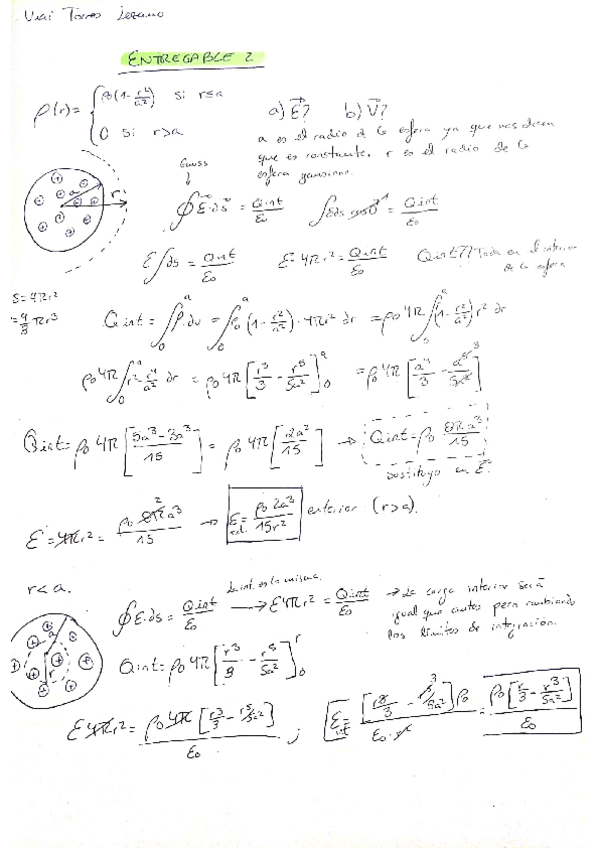 Torres Lezano
ENTREGABLE 2
ρ(r)= { ρ0(1-r²/a²) si r≤a
0 si r>a
a) E⃗? b) V⃗?
a es el radio de la esfera ya que nos dicen
que es constante. r es el radio de la
esfera gaussiana.
Gauss
↓
∮E⃗·ds⃗ = Qint/ε0 ∫Eds cos0 ¹ = Qint/ε0
E∫ds = Qint/ε0 E·4πr² = Qint/ε0 Qint?? Toda en el interior
de la esfera
S=4πr²
=4/3 πr³
Qint = ∫₀ᵃ ρ·dv = ∫₀ᵃ ρ0(1-r²/a²)·4πr² dr = ρ0 4π∫₀ᵃ(1-r²/a²)r² dr
ρ04π∫₀ᵃ r²-r⁴/a² dr = ρ0 4π[r³/3 - r⁵/5a²]₀ᵃ = ρ0 4π[a³/3 - a⁵ ³/5a²]
Qint = ρ0 4π[5a³-3a³/15] = ρ0 4π[2a³/15] → Qint = ρ0 8πa³/15
sustituyo en E
E=4πr² = ρ0 8π ² a³/15 → E ext. = ρ0 2a³/15r² exterior (r>a).
r<a.
la int. es la misma.
∮E·ds = Qint/ε0 → E4πr² = Qint/ε0 → La carga interior será
igual que antes pero cambiando
los límites de integración.
Qint = ρ0 4π[r³/3 - r⁵/5a²]₀ʳ
r
E4πr² = ρ0 4π[r³/3 - r⁵/5a²]/ε0 ; E int = [r³/3 - r⁵ ³/5a²]ρ0/ε0·r² = ρ0[r/3 - r³/5a²]/ε0